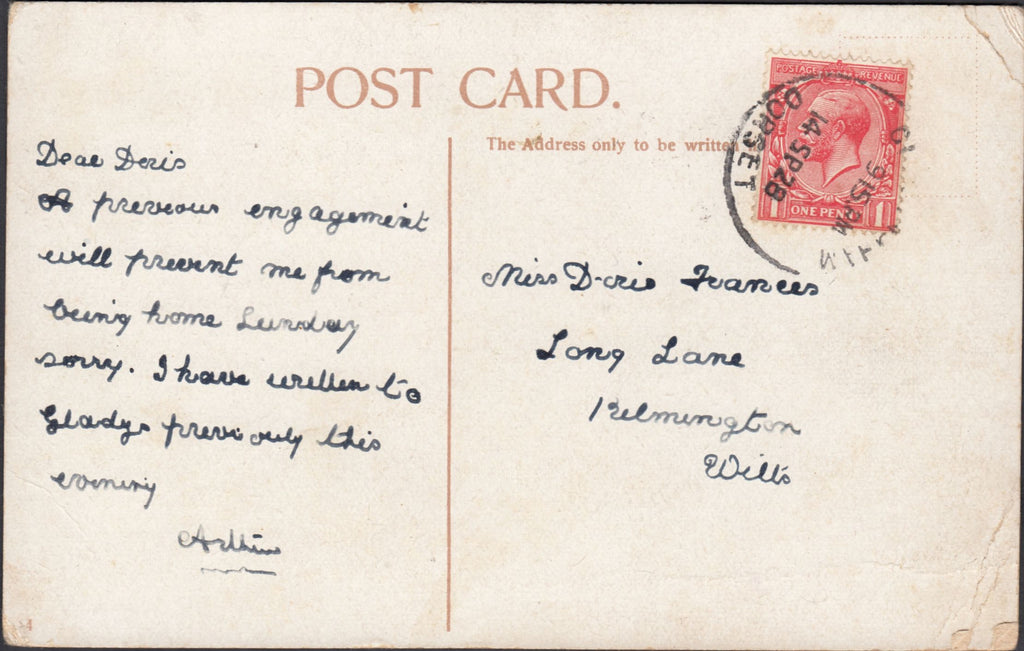 POST CARD.
The Address only to be written
POSTAGE REVENUE
1 ONE PENNY 1
DORSET
14 SP 28
915 PM
Dear Doris
A previous engagement
will prevent me from
being home Sunday
sorry. I have written to
Gladys previously this
evening
Arthur
Miss Doris Frances
Long Lane
Kilmington
Wilts